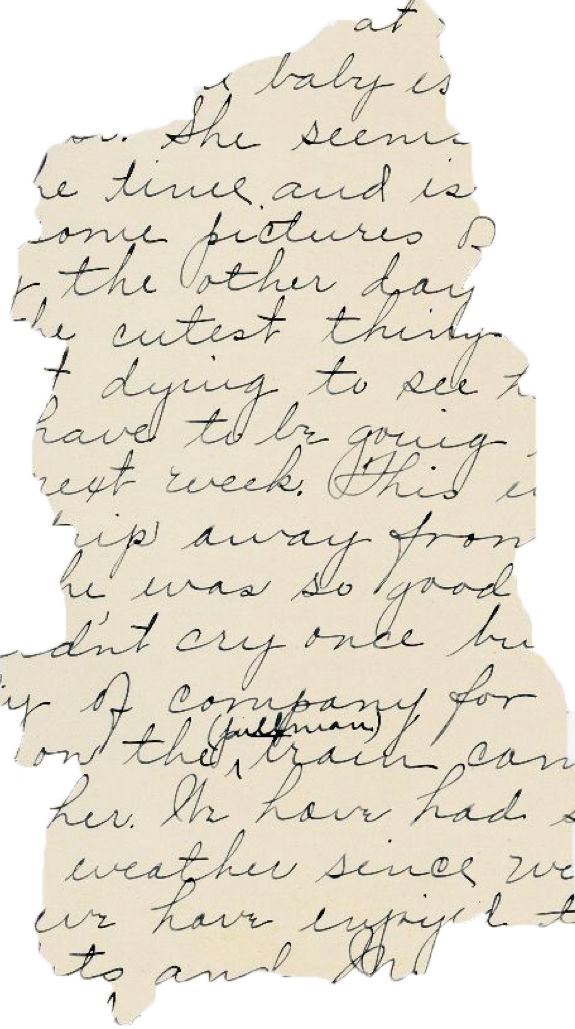 at
baby is
She seems
he time and is
ome pictures
the other day
he cutest thing
t dying to see
have to be going
next week. This
trip away from
he was so good
dn't cry once bu
of company for
on the (pullman) train can
her. We have had s
weather since we
we have enjoyed t
ts and